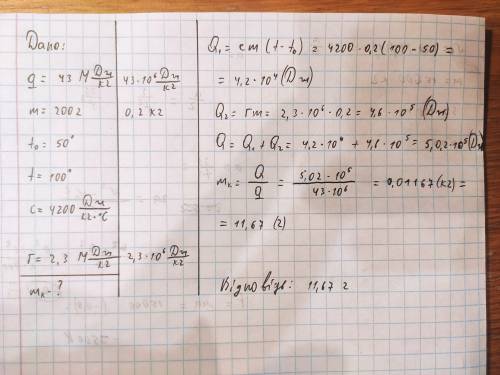 Дано:
q = 43 МДж/кг 43·10⁶ Дж/кг
m = 200г 0,2 кг
t₀ = 50°
t = 100°
c = 4200 Дж/кг·°C
r = 2,3 МДж/кг 2,3·10⁶ Дж/кг
mₖ - ?
Q₁ = cm (t - t₀) = 4200 · 0,2 (100 - 50) =
= 4,2 · 10⁴ (Дж)
Q₂ = rm = 2,3 · 10⁶ · 0,2 = 4,6 · 10⁵ (Дж)
Q = Q₁ + Q₂ = 4,2 · 10⁴ + 4,6 · 10⁵ = 5,02 · 10⁵ (Дж)
mₖ = Q/q = 5,02 · 10⁵/43 · 10⁶ = 0,01167 (кг) =
= 11,67 (г)
Відповідь: 11,67 г